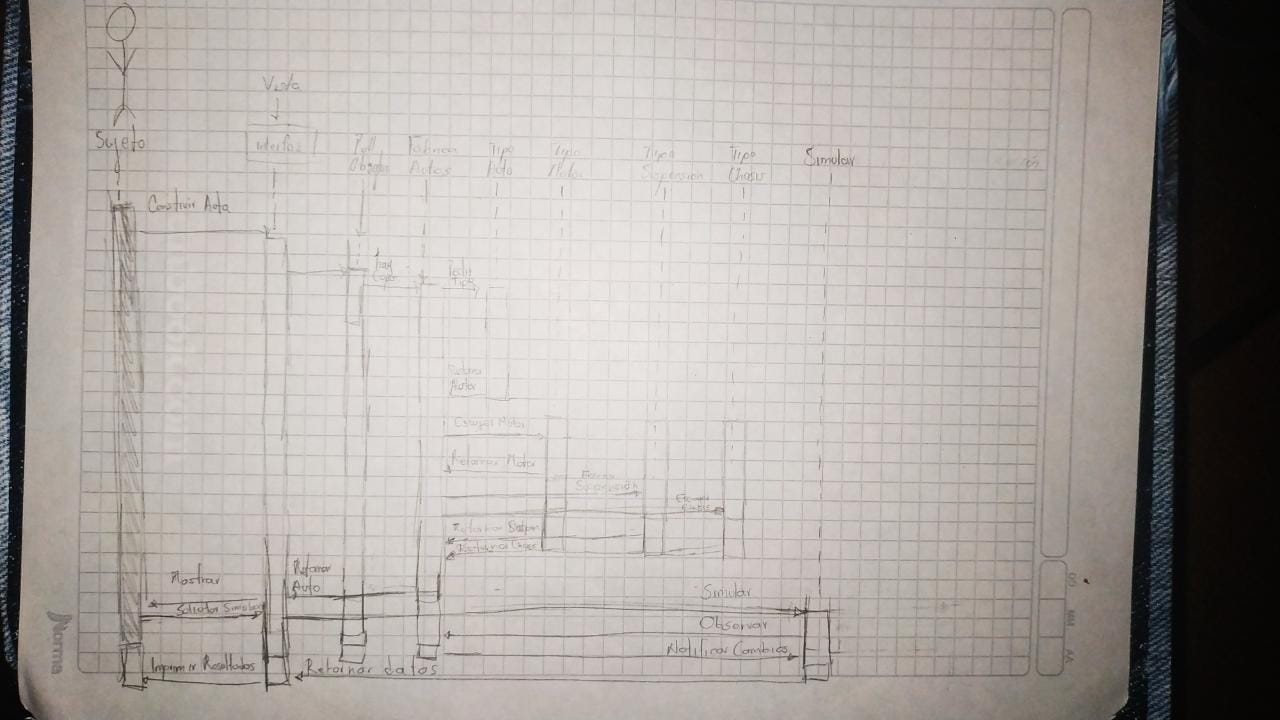 Vista
Sujeto
Interfaz
Fabrica
Autos
Tipo
Auto
Tipo
Motor
Tipo
Suspension
Tipo
Chasis
Simular
Construir Auto
Pedir
Tipo
Retornar
Escoger Motor
Retornar Motor
Escoger
Suspension
Escoger
Retornar
Retornar Chasis
Retornar
Auto
Mostrar
Solicitar Simular
Simular
Observar
Notificar Cambios
Imprimir Resultados
Retornar datos
Norma
DD
MM
AA